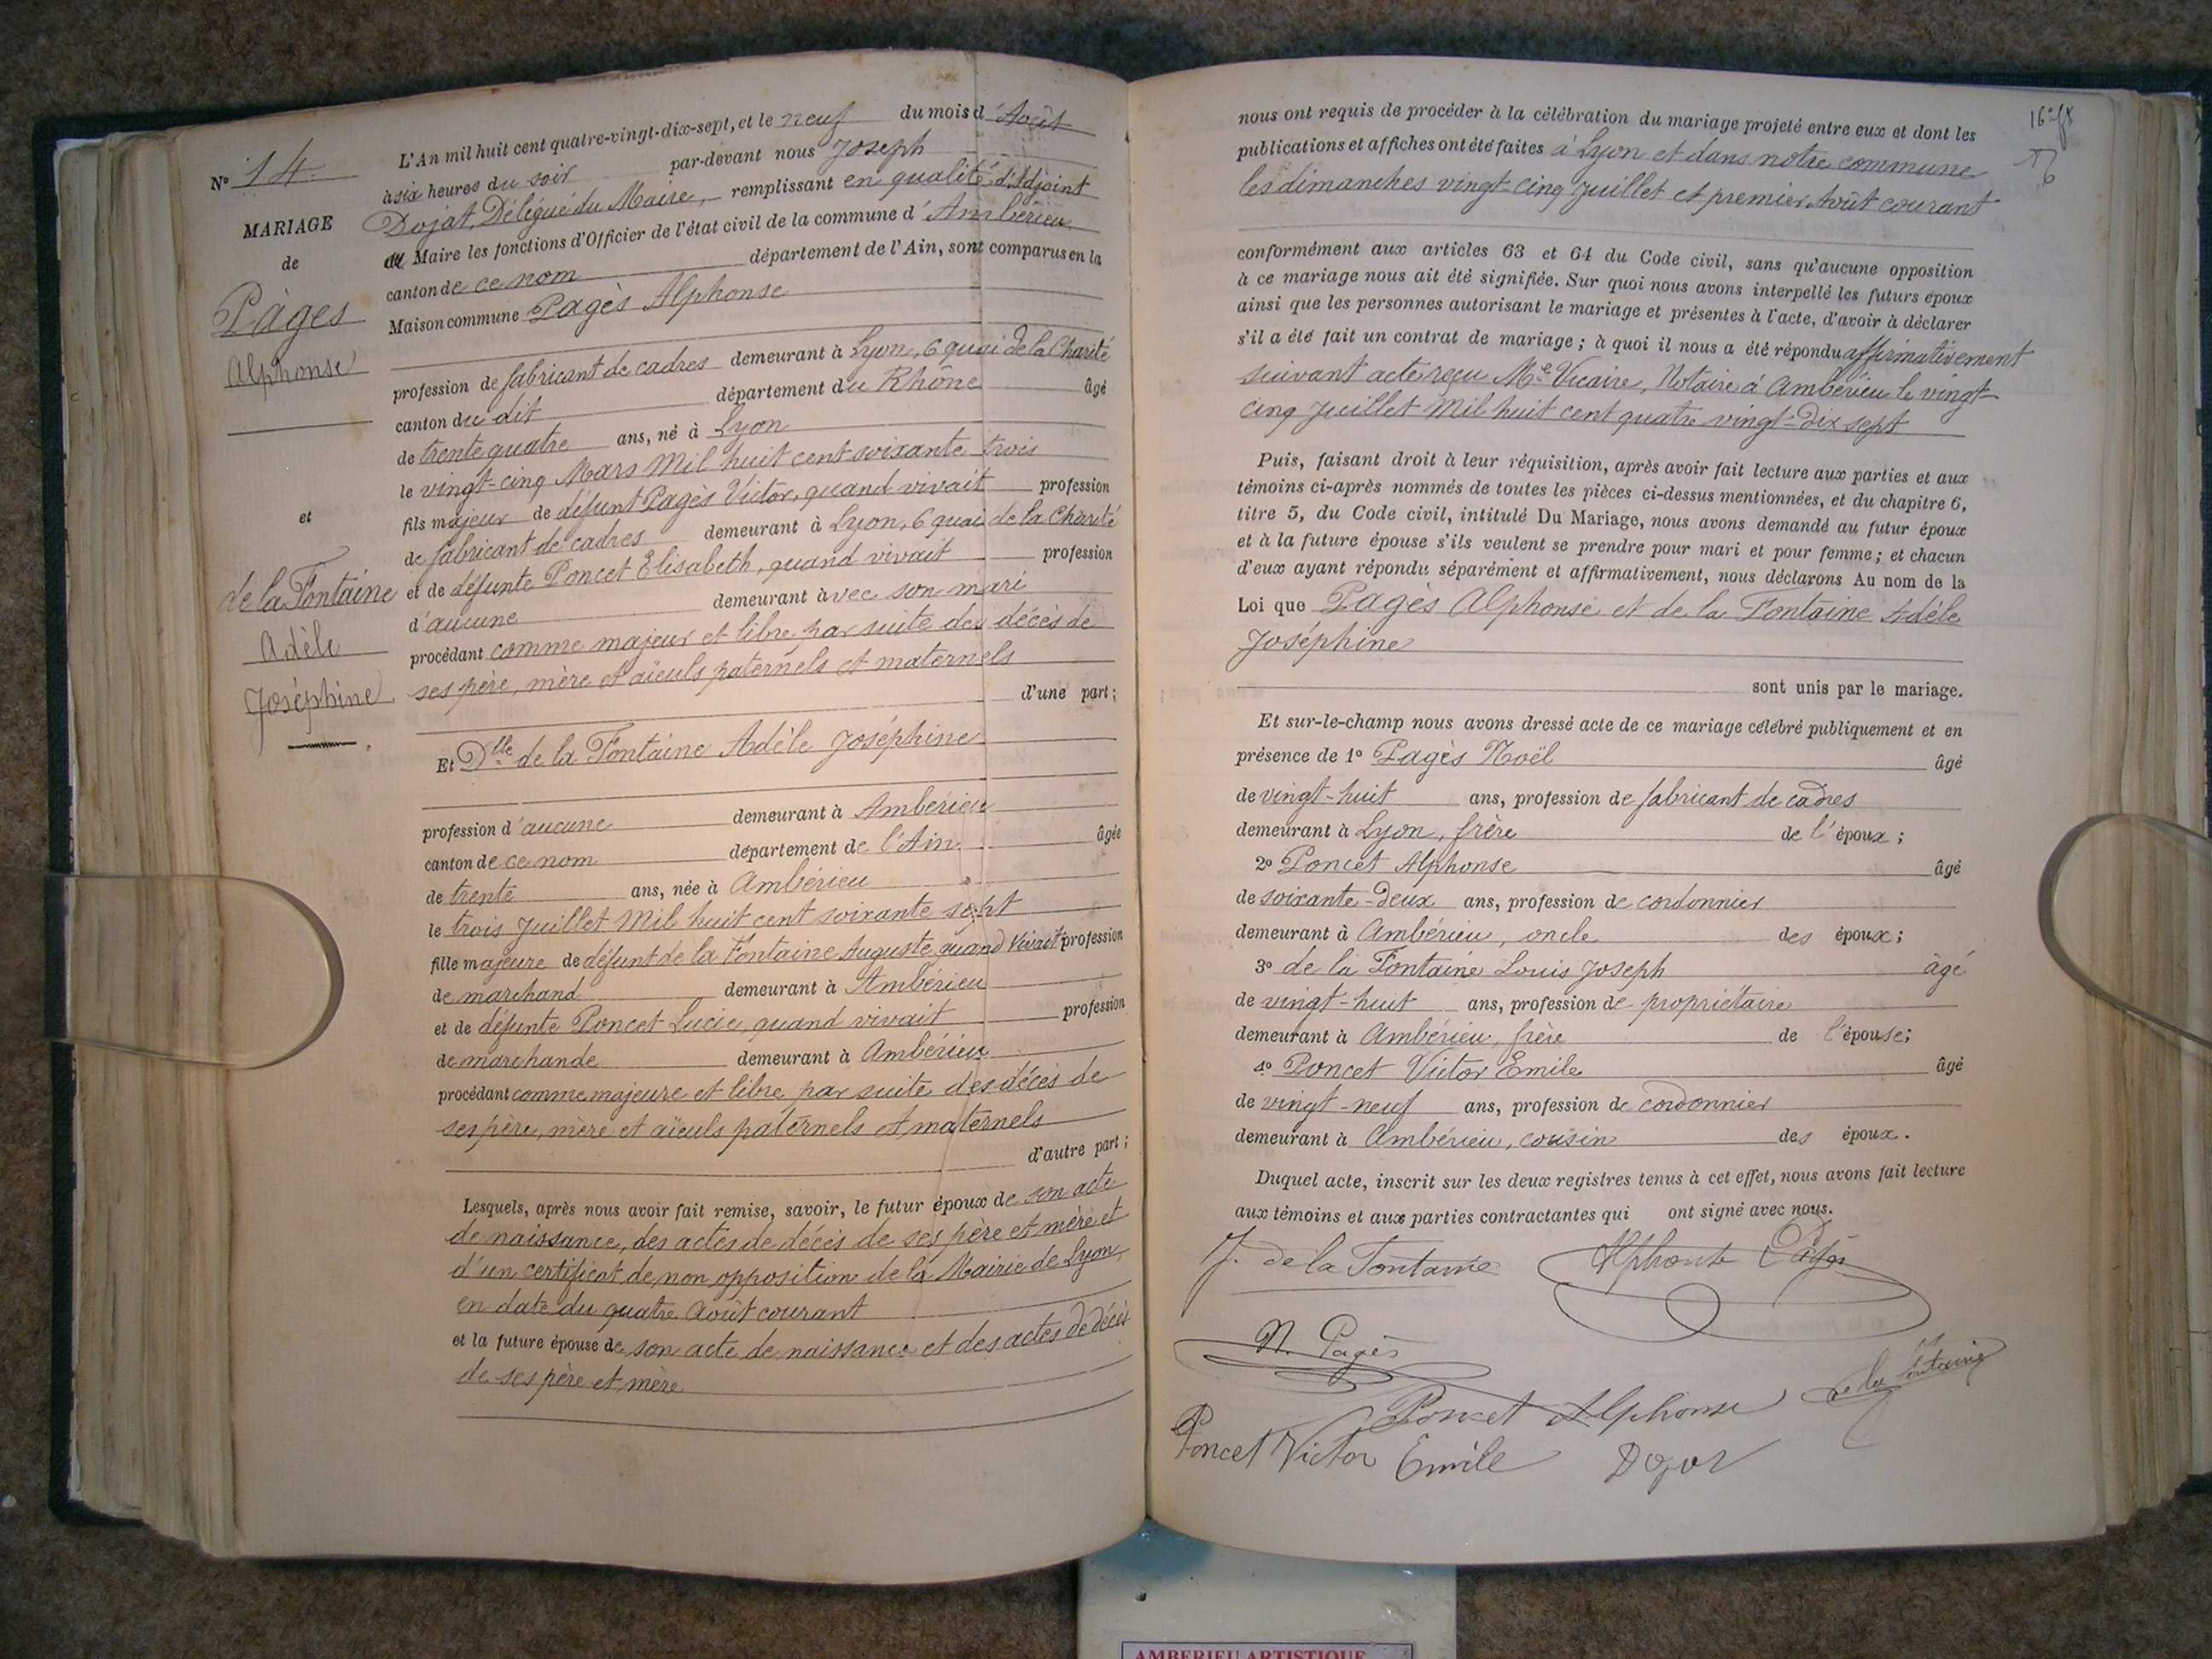 N° 14
MARIAGE
de
Pàges
Alphonse
et
de la Fontaine
Adèle
Joséphine
L'An mil huit cent quatre-vingt-dix-sept, et le neuf du mois d'Août
à six heures du soir par-devant nous Joseph
Dojat, Délégué du Maire, remplissant en qualité d'Adjoint
Maire les fonctions d'Officier de l'état civil de la commune d'Ambérieu
canton de ce nom département de l'Ain, sont comparus en la
Maison commune Pagès Alphonse
profession de fabricant de cadres demeurant à Lyon, 6 quai de la Charité
canton du dit département du Rhône âgé
de trente quatre ans, né à Lyon
le vingt-cinq Mars Mil huit cent soixante trois
fils majeur de défunt Pagès Victor, quand vivait profession
de fabricant de cadres demeurant à Lyon, 6 quai de la Charité
et de défunte Poncet Elisabeth, quand vivait profession
d'aucune demeurant avec son mari
procédant comme majeur et libre par suite des décès de
ses père, mère et aïeuls paternels et maternels
d'une part;
Et Dlle de la Fontaine Adèle Joséphine
profession d'aucune demeurant à Ambérieu
canton de ce nom département de l'Ain âgée
de trente ans, née à Ambérieu
le trois Juillet Mil huit cent soixante sept
fille majeure de défunt de la Fontaine Auguste quand vivait profession
de marchand demeurant à Ambérieu
et de défunte Poncet Lucie, quand vivait profession
de marchande demeurant à Ambérieu
procédant comme majeure et libre par suite des décès de
ses père, mère et aïeuls paternels et maternels
d'autre part;
Lesquels, après nous avoir fait remise, savoir, le futur époux de son acte
de naissance, des actes de décès de ses père et mère et
d'un certificat de non opposition de la Mairie de Lyon,
en date du quatre Août courant
et la future épouse de son acte de naissance et des actes de décès
de ses père et mère
nous ont requis de procéder à la célébration du mariage projeté entre eux et dont les
publications et affiches ont été faites à Lyon et dans notre commune
les dimanches vingt-cinq Juillet et premier Août courant
conformément aux articles 63 et 64 du Code civil, sans qu'aucune opposition
à ce mariage nous ait été signifiée. Sur quoi nous avons interpellé les futurs époux
ainsi que les personnes autorisant le mariage et présentes à l'acte, d'avoir à déclarer
s'il a été fait un contrat de mariage; à quoi il nous a été répondu affirmativement
suivant acte reçu Me Vicaire, Notaire à Ambérieu le vingt
cinq Juillet Mil huit cent quatre vingt-dix sept
Puis, faisant droit à leur réquisition, après avoir fait lecture aux parties et aux
témoins ci-après nommés de toutes les pièces ci-dessus mentionnées, et du chapitre 6,
titre 5, du Code civil, intitulé Du Mariage, nous avons demandé au futur époux
et à la future épouse s'ils veulent se prendre pour mari et pour femme; et chacun
d'eux ayant répondu séparément et affirmativement, nous déclarons Au nom de la
Loi que Pagès Alphonse et de la Fontaine Adèle
Joséphine
sont unis par le mariage.
Et sur-le-champ nous avons dressé acte de ce mariage célébré publiquement et en
présence de 1° Pagès Noël âgé
de vingt-huit ans, profession de fabricant de cadres
demeurant à Lyon, frère de l'époux;
2° Poncet Alphonse âgé
de soixante-deux ans, profession de cordonnier
demeurant à Ambérieu, oncle des époux;
3° de la Fontaine Louis Joseph âgé
de vingt-huit ans, profession de propriétaire
demeurant à Ambérieu, frère de l'épouse;
4° Poncet Victor Emile âgé
de vingt-neuf ans, profession de cordonnier
demeurant à Ambérieu, cousin des époux.
Duquel acte, inscrit sur les deux registres tenus à cet effet, nous avons fait lecture
aux témoins et aux parties contractantes qui ont signé avec nous.
J. de la Fontaine Alphonse Pagès
N. Pagès
de la Fontaine
Poncet Alphonse
Poncet Victor Emile Dojat
AMBERIEU ARTISTIQUE